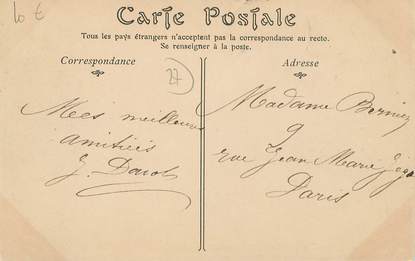 10 €
Carte Postale
Tous les pays étrangers n'acceptent pas la correspondance au recto.
Se renseigner à la poste.
Correspondance
Adresse
27
Mes meilleures
amitiés
G.
Madame
9
rue Jean Marie
Paris